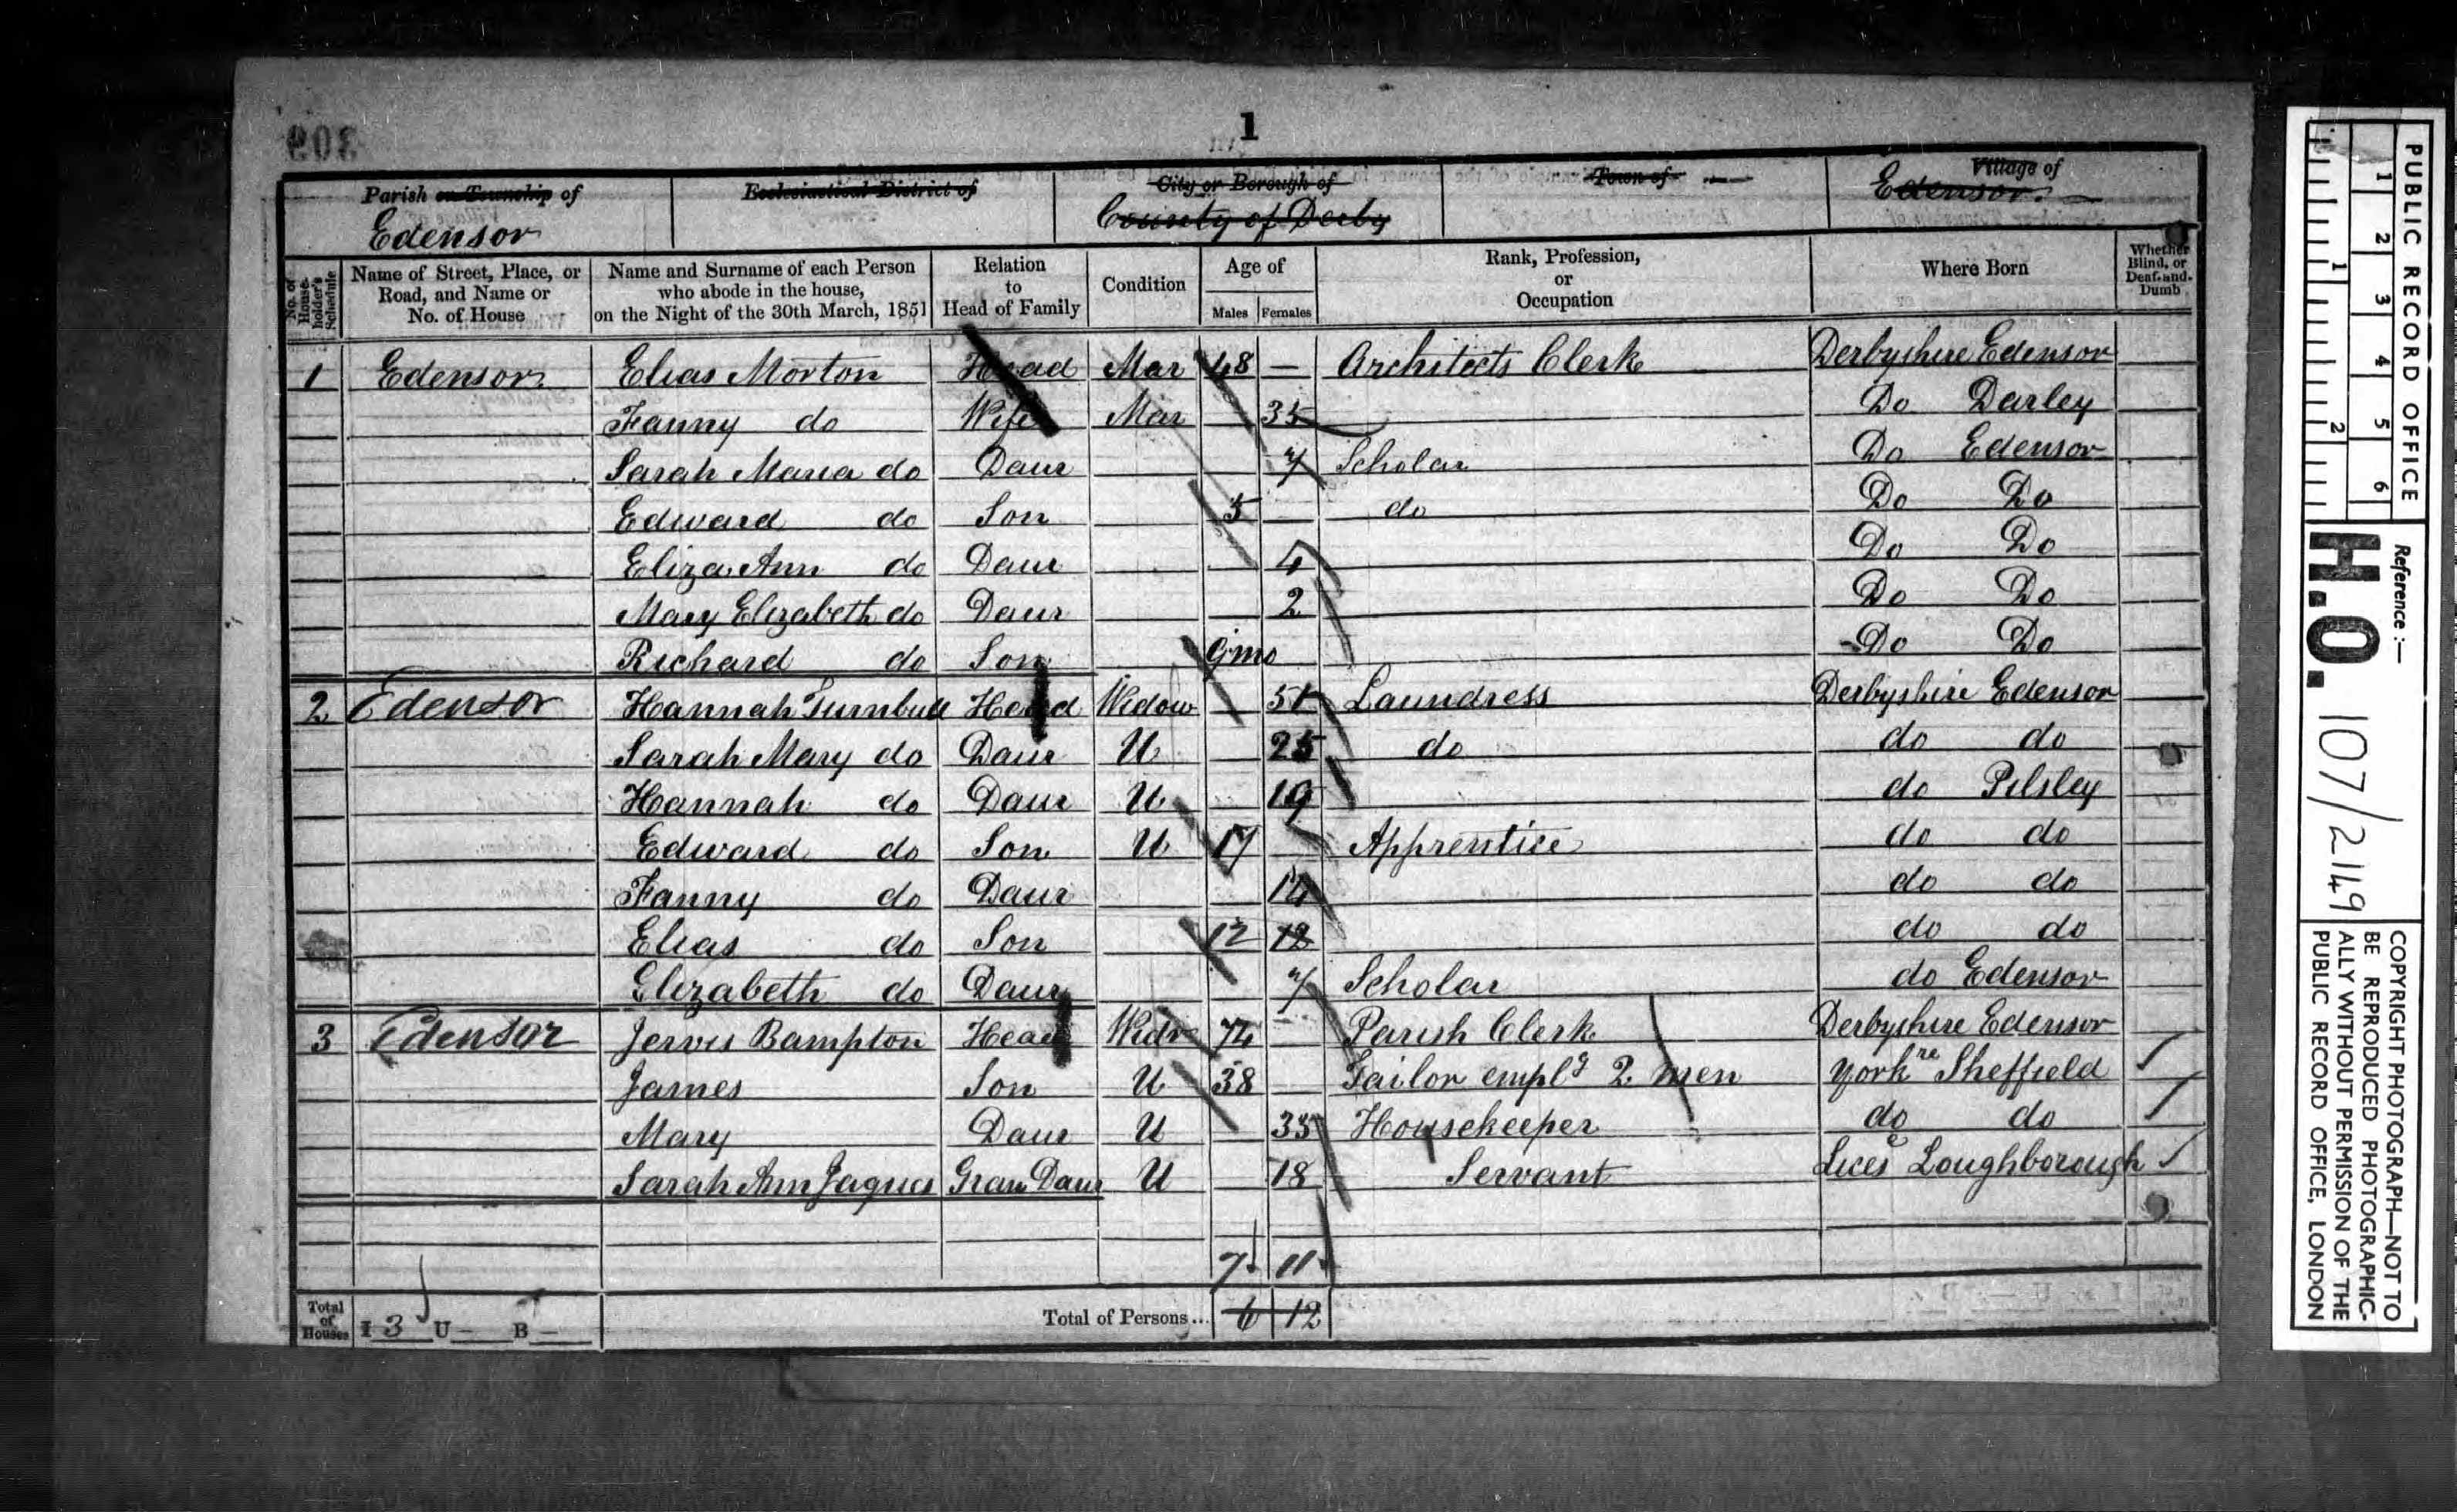 1
309
Parish or Township of
Edensor
Ecclesiastical District of
City or Borough of
County of Derby
Town of
Village of
Edensor
No. of House-holder's Schedule
Name of Street, Place, or Road, and Name or No. of House
Name and Surname of each Person who abode in the house, on the Night of the 30th March, 1851
Relation to Head of Family
Condition
Age of
Males Females
Rank, Profession, or Occupation
Where Born
Whether Blind, or Deaf-and-Dumb
1 Edensor Elias Morton Head Mar 48 — Architects Clerk Derbyshire Edensor
Fanny do Wife Mar 35 Do Darley
Sarah Maria do Daur 7 Scholar Do Edensor
Edward do Son 5 do Do Do
Eliza Ann do Daur 4 Do Do
Mary Elizabeth do Daur 2 Do Do
Richard do Son 9mo Do Do
2 Edensor Hannah Turnbull Head Widow 51 Laundress Derbyshire Edensor
Sarah Mary do Daur U 25 do do do
Hannah do Daur U 19 do Pilsley
Edward do Son U 17 Apprentice do do
Fanny do Daur 14 do do
Elias do Son 12 12 do do
Elizabeth do Daur 7 Scholar do Edensor
3 Edensor Jervis Bampton Head Widr 74 Parish Clerk Derbyshire Edensor
James Son U 38 Tailor emplg 2 men Yorkre Sheffield
Mary Daur U 33 Housekeeper do do
Sarah Ann Jaques Gran Daur U 18 Servant Leices Loughborough
7 11
Total of Houses I 3 U — B — Total of Persons... 6 12
PUBLIC RECORD OFFICE
1 2 3 4 5 6
1 2
Reference :—
H.O. 107/2149
COPYRIGHT PHOTOGRAPH—NOT TO
BE REPRODUCED PHOTOGRAPHIC-
ALLY WITHOUT PERMISSION OF THE
PUBLIC RECORD OFFICE, LONDON